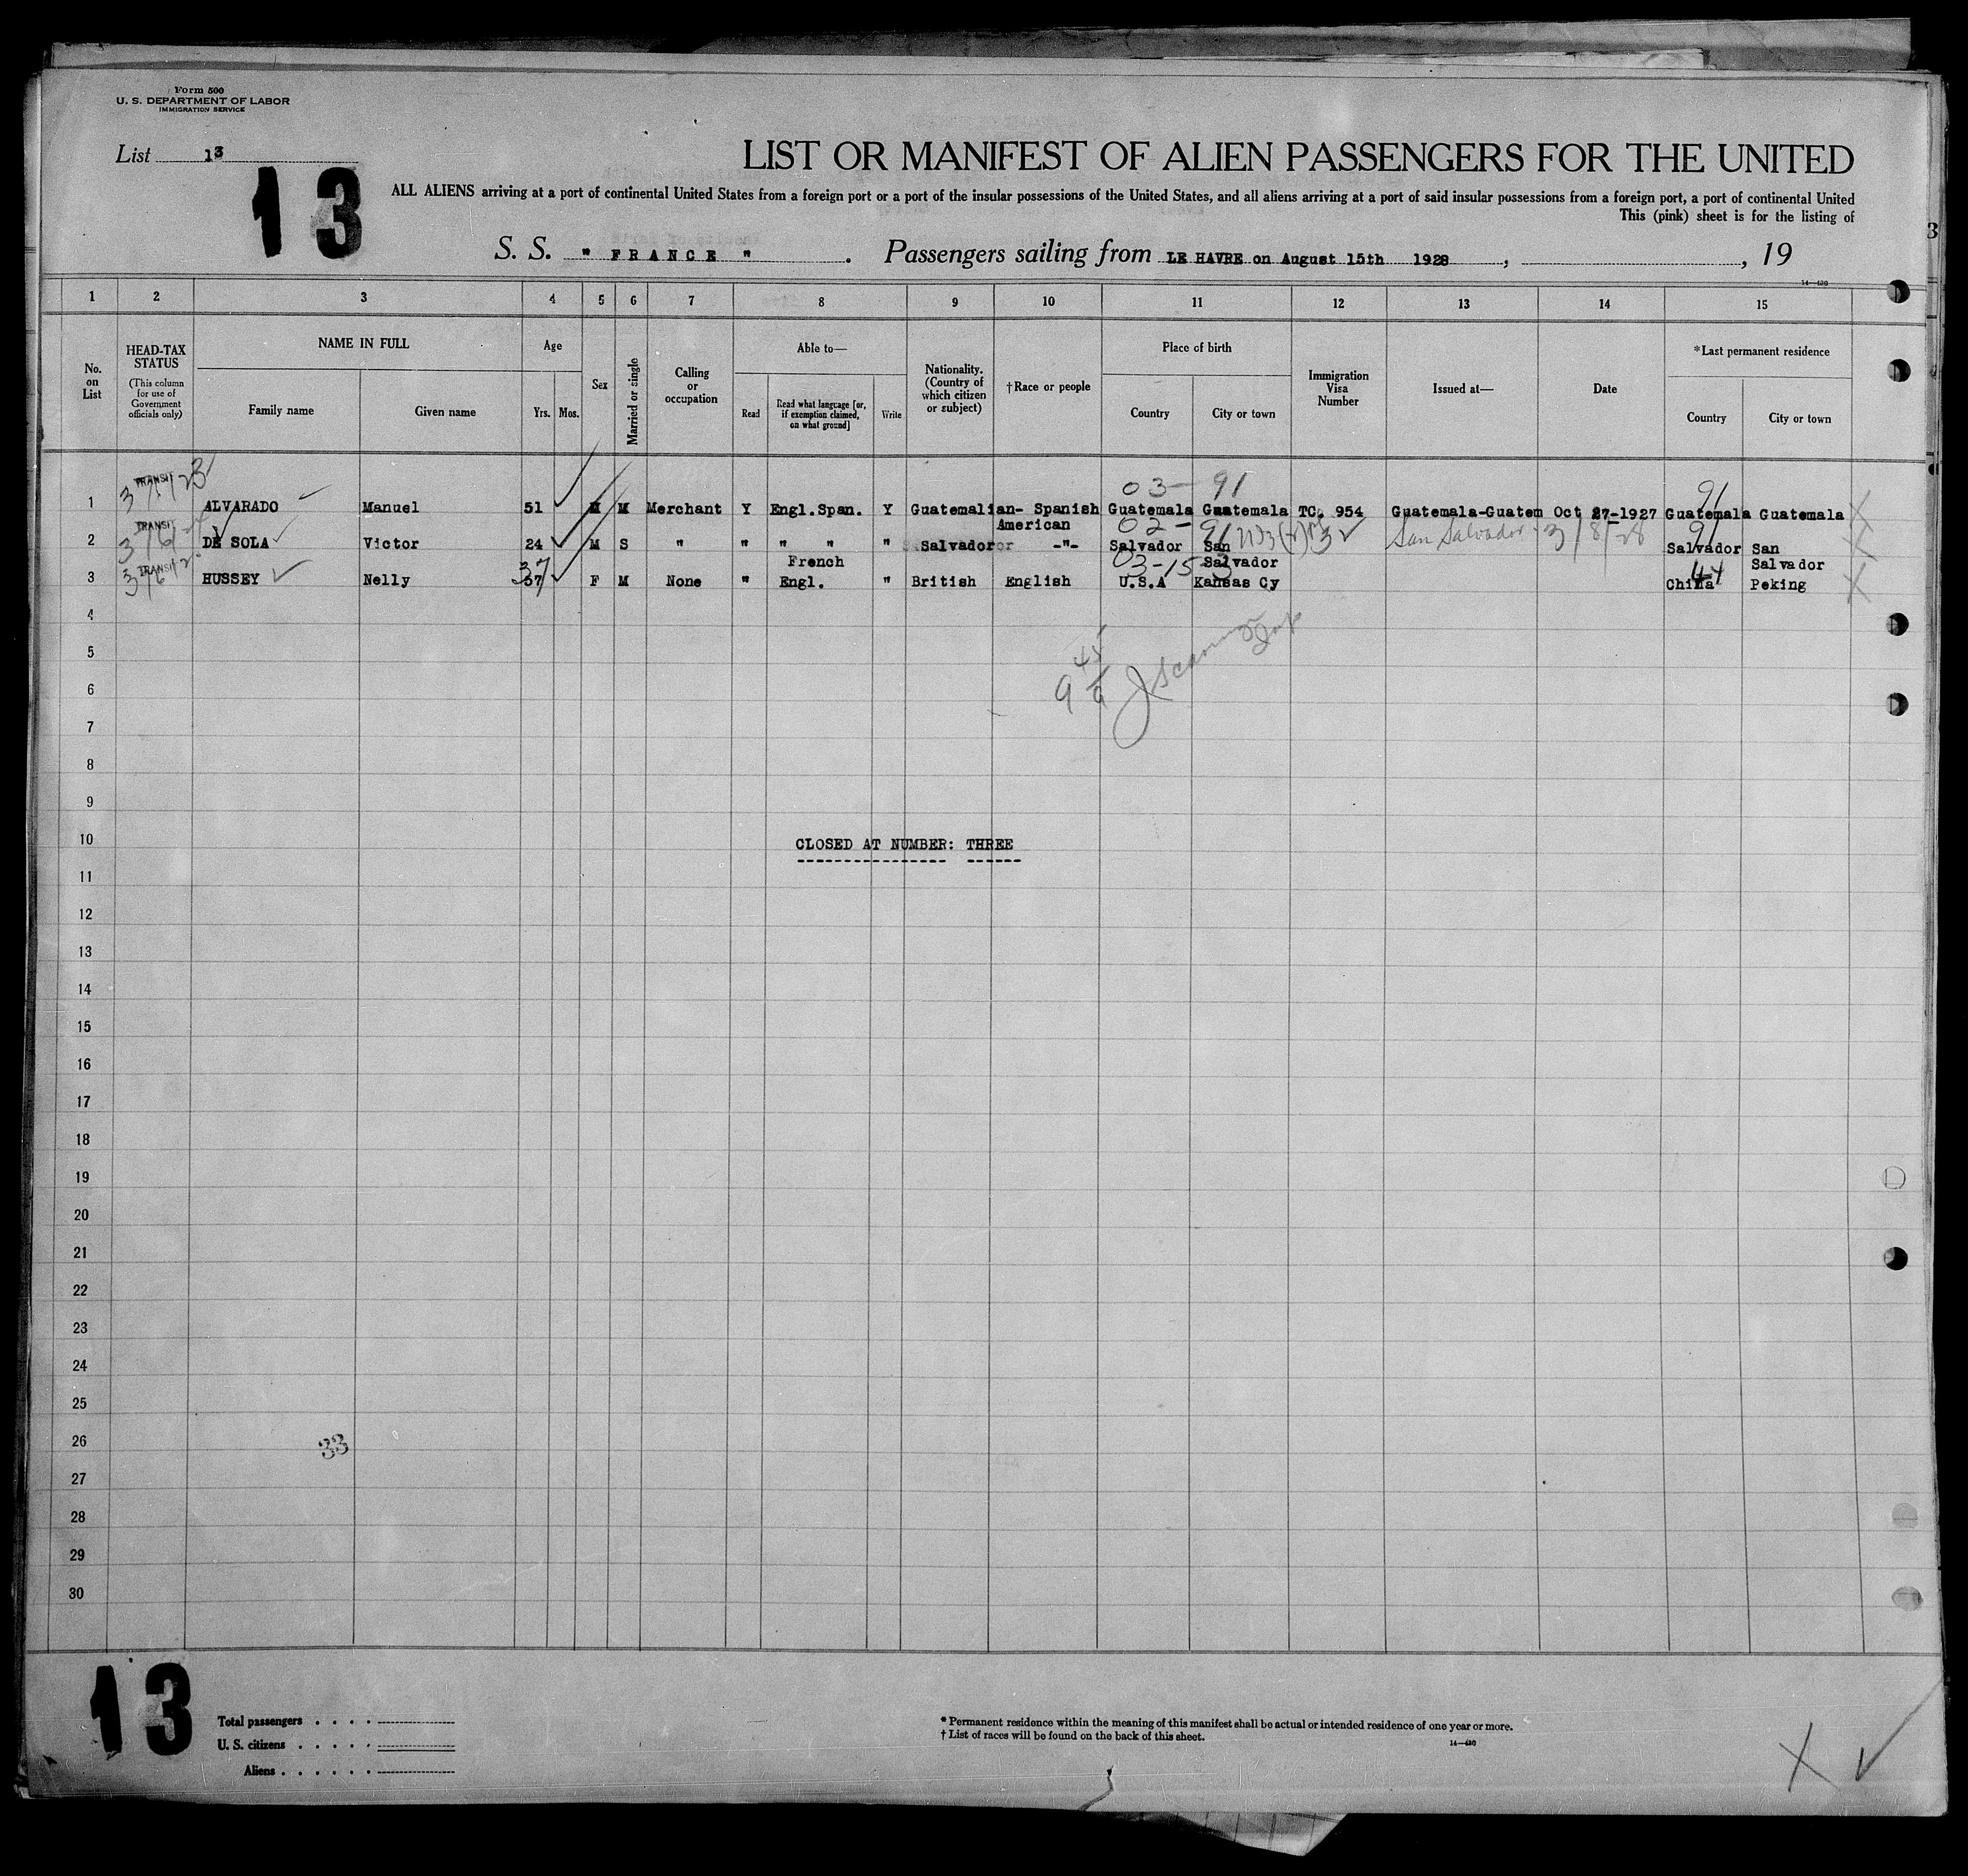 Form 500
U. S. DEPARTMENT OF LABOR
IMMIGRATION SERVICE
List 13
13
LIST OR MANIFEST OF ALIEN PASSENGERS FOR THE UNITED
ALL ALIENS arriving at a port of continental United States from a foreign port or a port of the insular possessions of the United States, and all aliens arriving at a port of said insular possessions from a foreign port, a port of continental United
This (pink) sheet is for the listing of
S. S. " FRANCE " . Passengers sailing from LE HAVRE on August 15th 1928 , , 19
14—430
1 2 3 4 5 6 7 8 9 10 11 12 13 14 15
No. on List
HEAD-TAX STATUS
(This column for use of Government officials only)
NAME IN FULL
Family name Given name
Age
Yrs. Mos.
Sex
Married or single
Calling or occupation
Able to—
Read
Read what language [or, if exemption claimed, on what ground]
Write
Nationality. (Country of which citizen or subject)
†Race or people
Place of birth
Country City or town
Immigration Visa Number
Issued at—
Date
*Last permanent residence
Country City or town
TRANSIT 03— 91 91
1 ALVARADO Manuel 51 M M Merchant Y Engl.Span. Y Guatemalian- Spanish American Guatemala Guatemala TC. 954 Guatemala-Guatem Oct 27-1927 Guatemala Guatemala X
TRANSIT 02- 91 91
2 DE SOLA Victor 24 M S " " " " " Salvador -"- Salvador San Salvador 3 San Salvador 3/8/28 Salvador San Salvador X
TRANSIT 37 03-15-3 44
3 HUSSEY Nelly 37 F M None " French Engl. " British English U.S.A Kansas Cy China Peking X
4
5
9 45/9
6
7
8
9
10 CLOSED AT NUMBER: THREE
11
12
13
14
15
16
17
18
19
20
21
22
23
24
25
26 33
27
28
29
30
13
Total passengers . . . .
U. S. citizens . . . . .
Aliens . . . . . .
* Permanent residence within the meaning of this manifest shall be actual or intended residence of one year or more.
† List of races will be found on the back of this sheet.
14—430
X